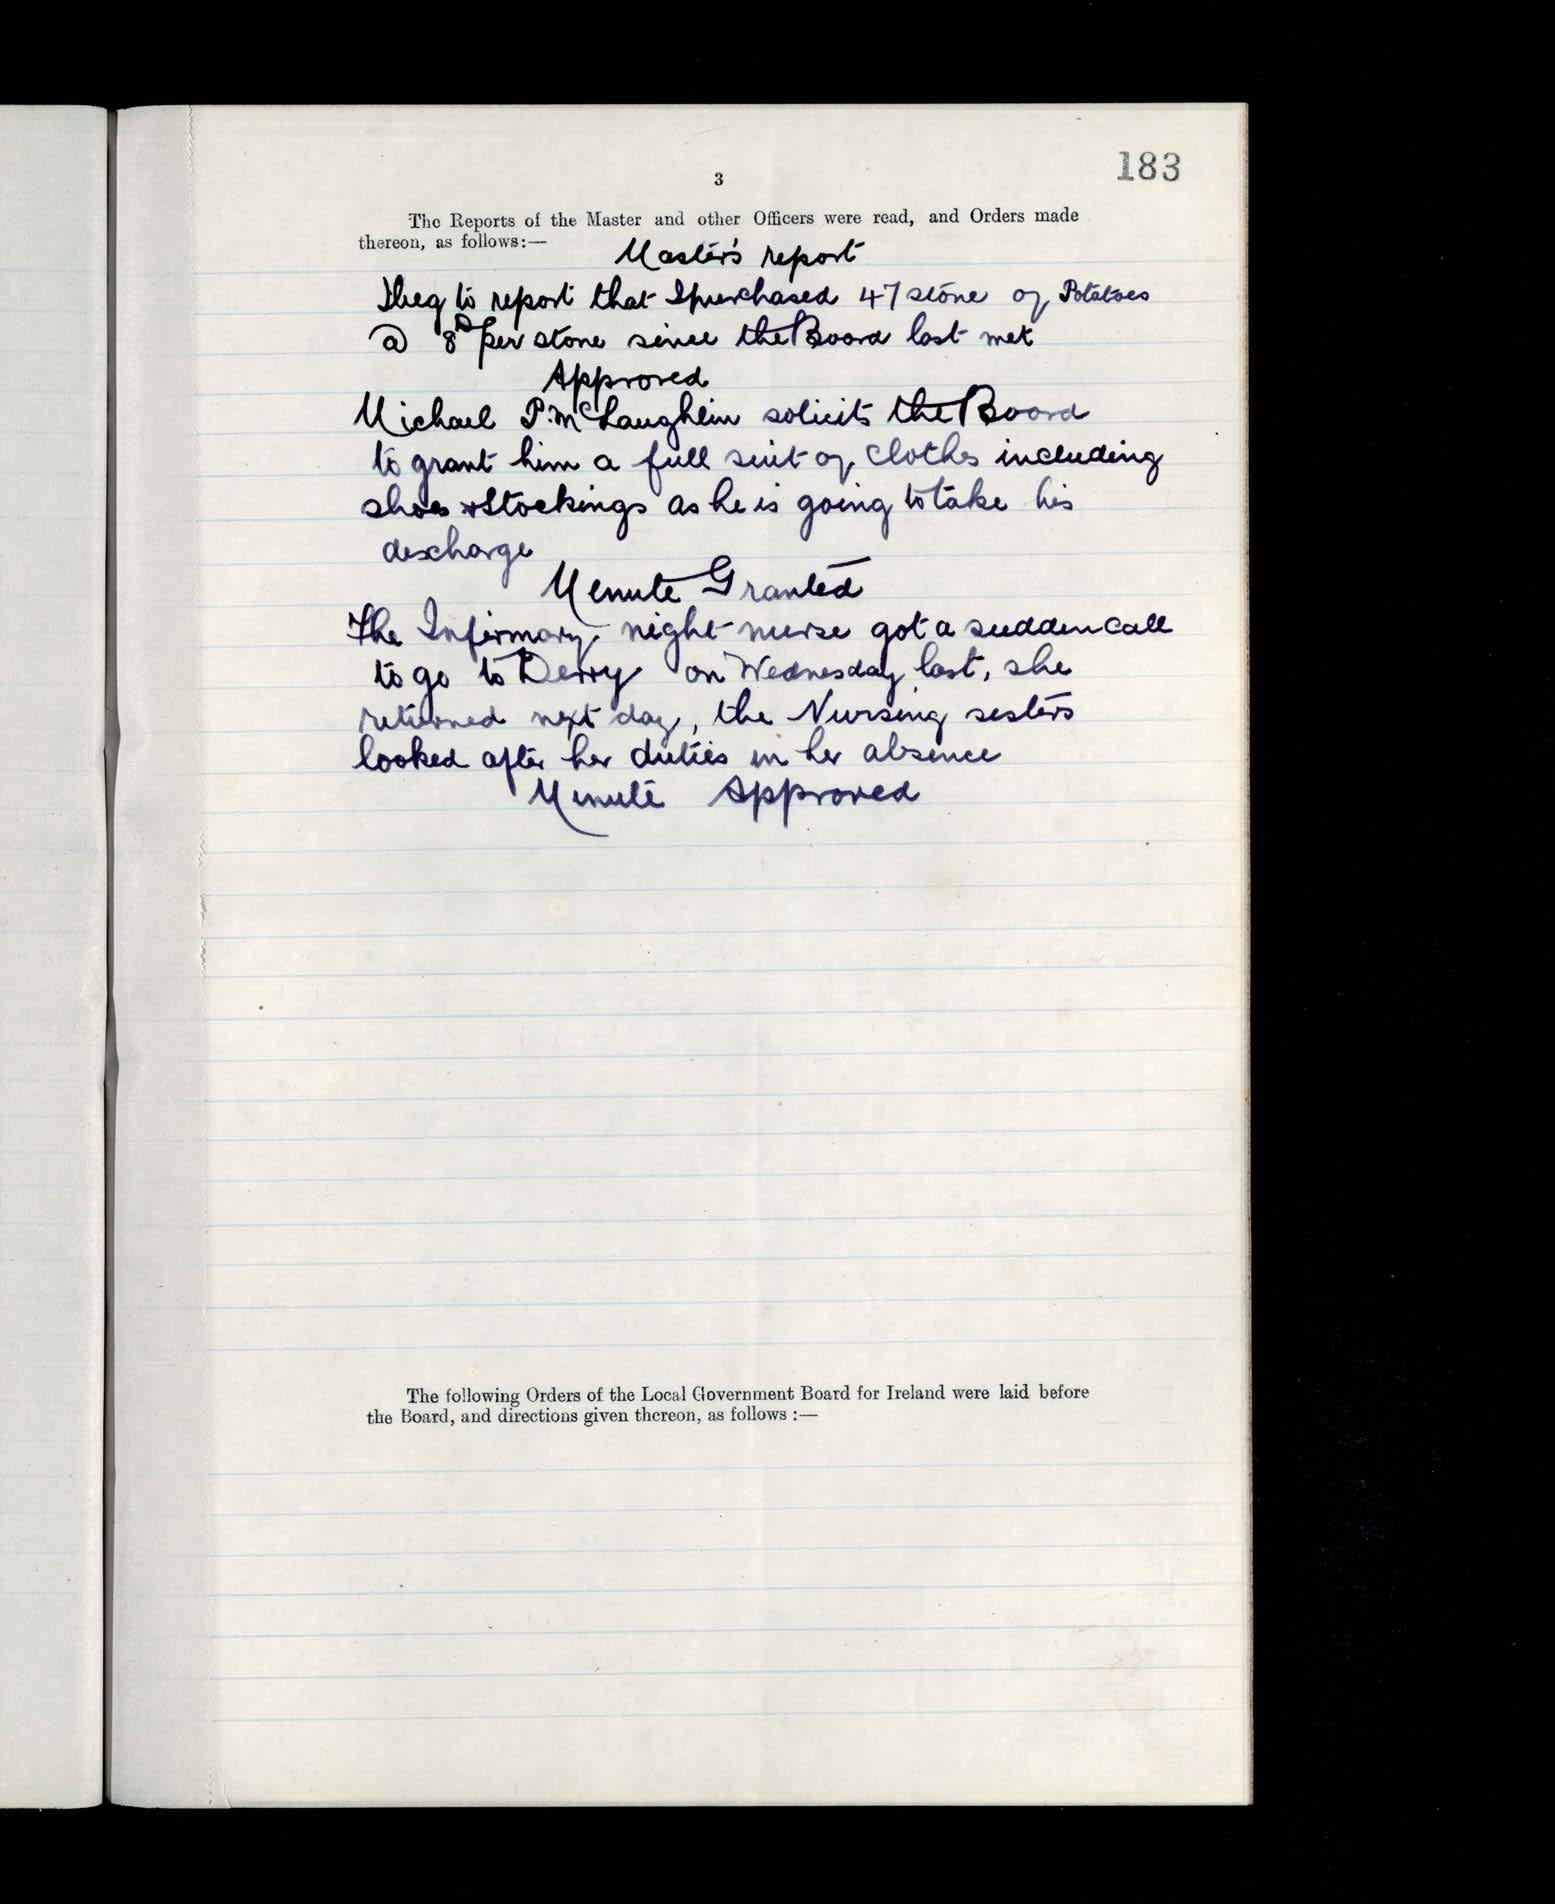 183
3
The Reports of the Master and other Officers were read, and Orders made
thereon, as follows:—
Master's report
I beg to report that I purchased 47 stone of Potatoes
@ 8D per stone since the Board last met
Approved
Michael P. McLaughlin solicits the Board
to grant him a full suit of clothes including
shoes & Stockings as he is going to take his
discharge
Minute Granted
The Infirmary night nurse got a sudden call
to go to Derry on Wednesday last, she
returned next day, the Nursing sisters
looked after her duties in her absence
Minute Approved
The following Orders of the Local Government Board for Ireland were laid before
the Board, and directions given thereon, as follows :—